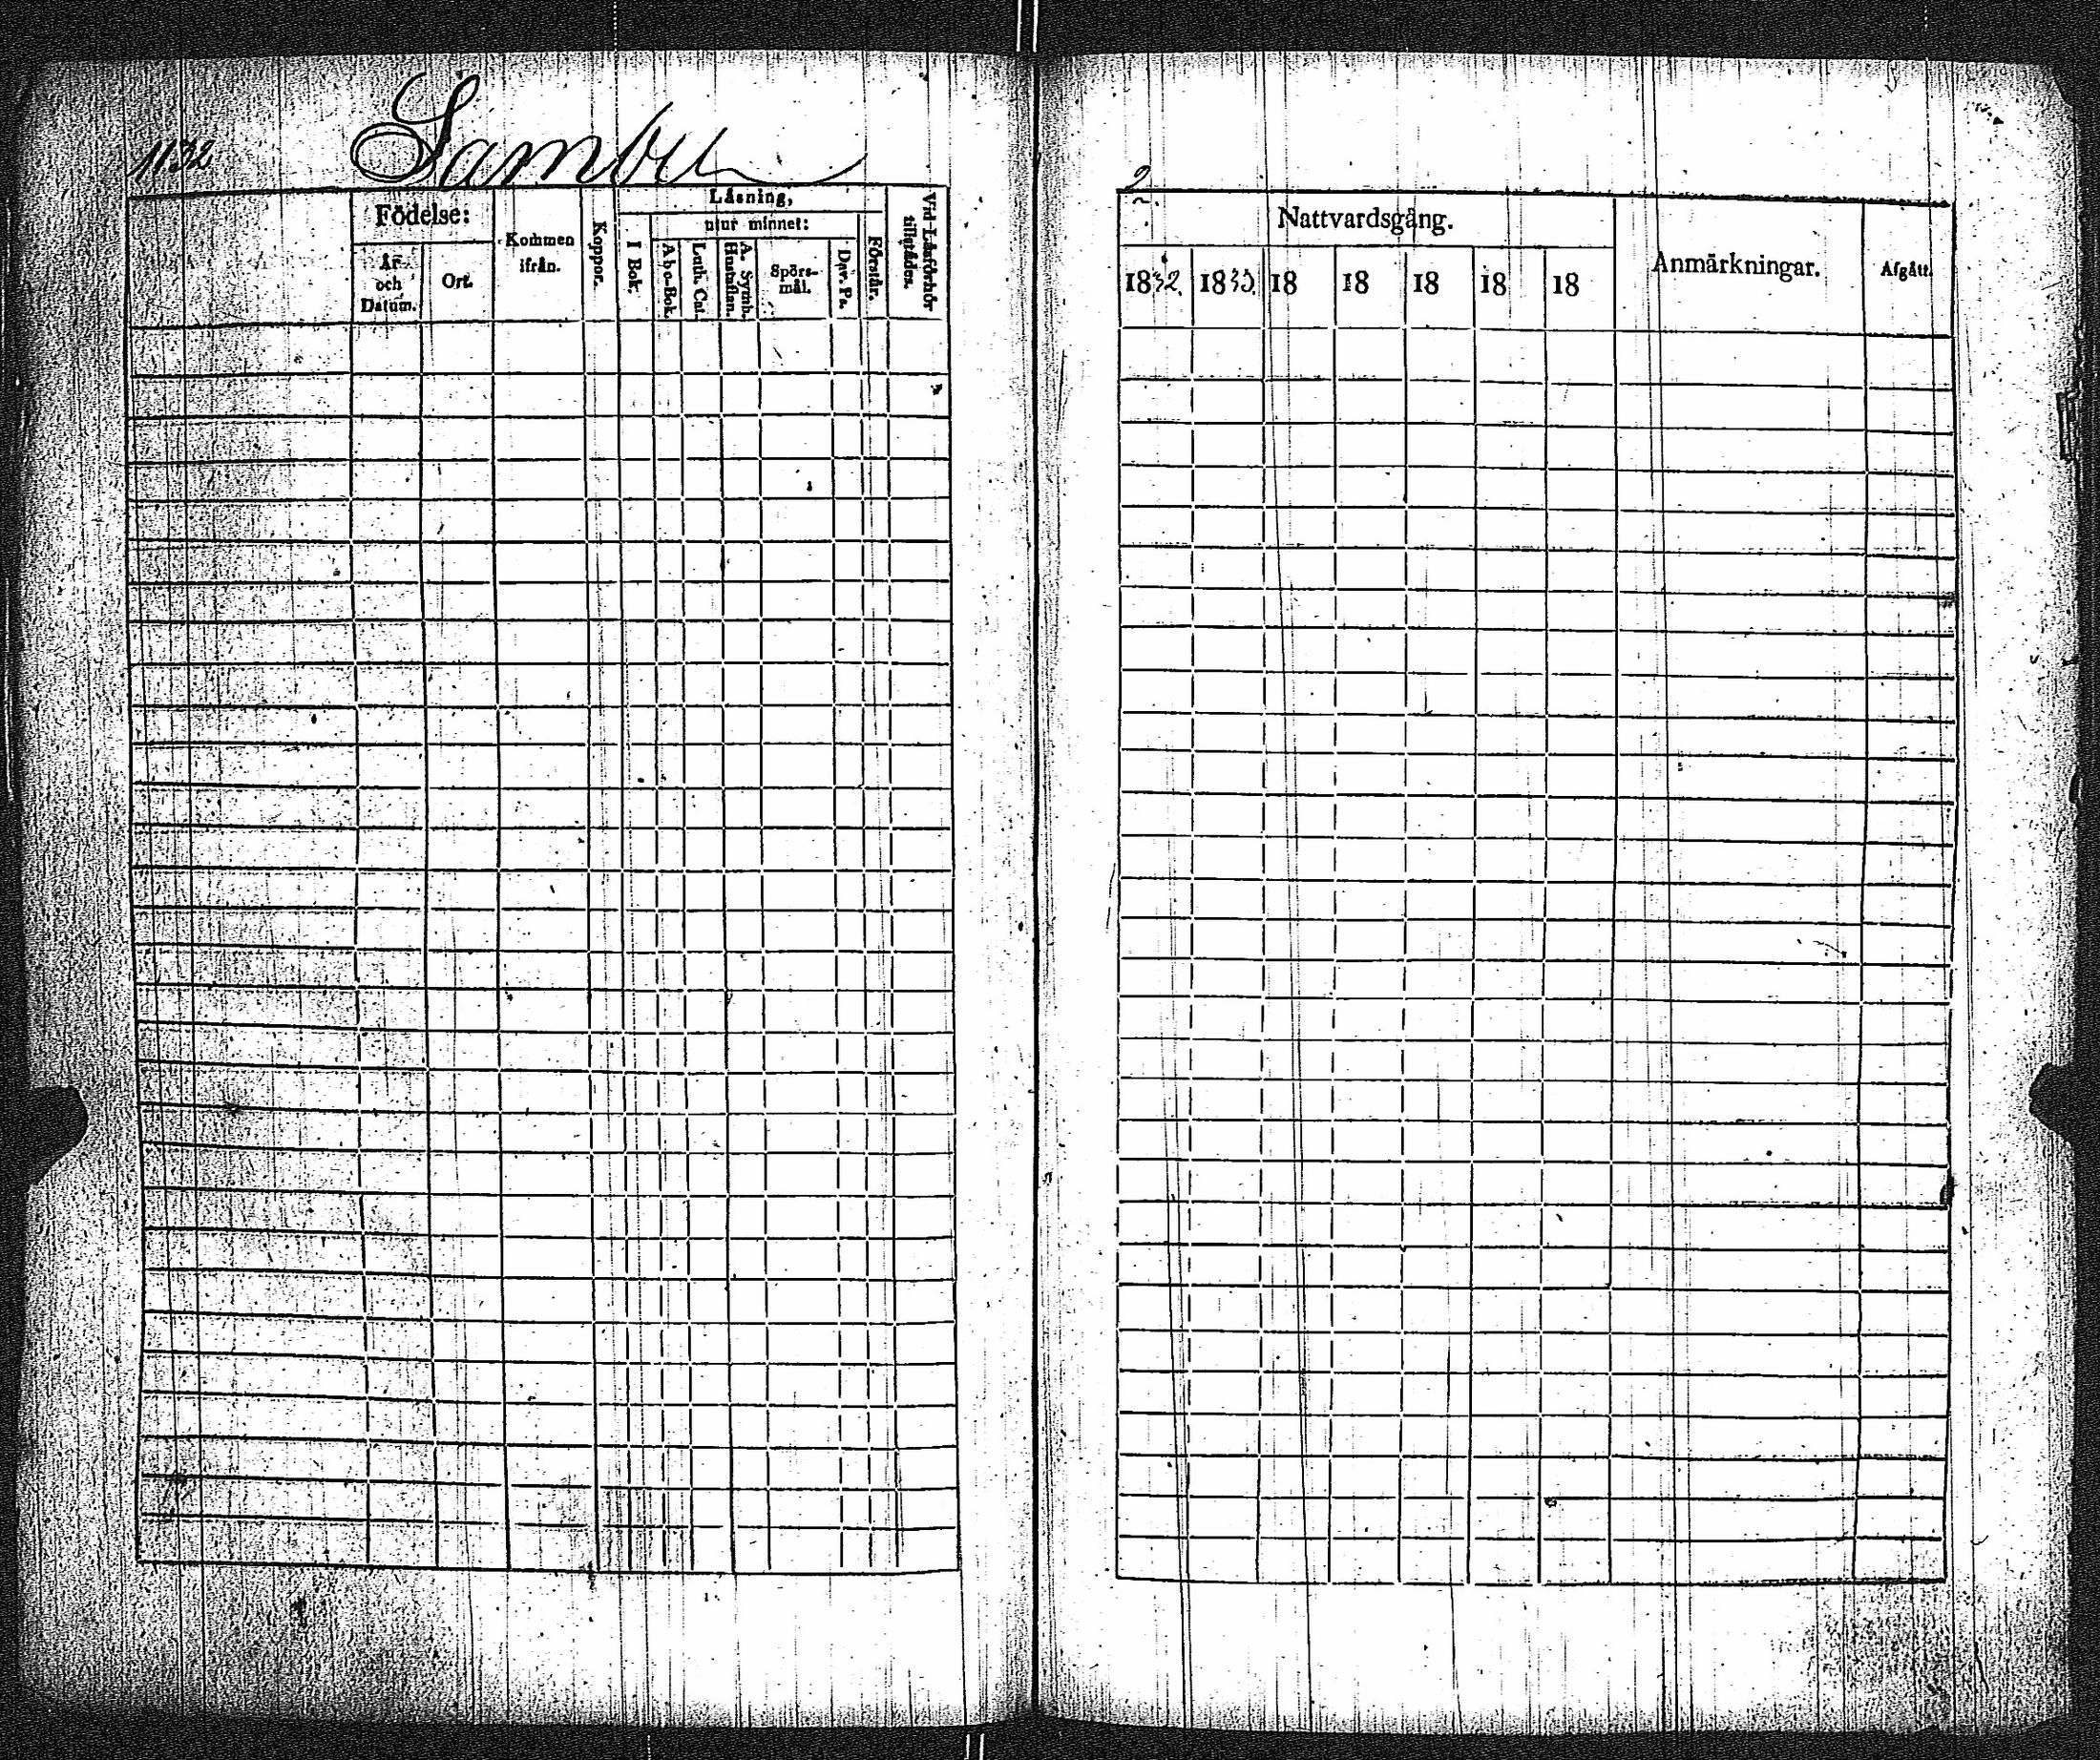 1132
Sambu
Födelse:
År och Datum.
Ort.
Kommen ifrån.
Koppor.
Läsning,
utur minnet:
I Bok.
Abc-Bok.
Luth. Cat.
A. Symb. Hustaflan.
Spörs-mål.
Dav. Ps.
Förstår.
Vid Läsförhör tillstädes.
2
Nattvardsgång.
1832. 1833. 18 18 18 18 18
Anmärkningar.
Afgått.